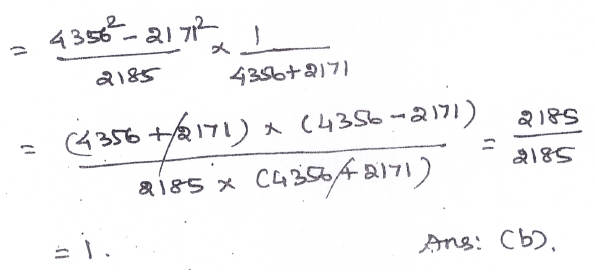 = 4356² - 2171² / 2185 × 1 / 4356+2171
= (4356 + 2171) × (4356 - 2171) / 2185 × (4356 + 2171) = 2185 / 2185
= 1. Ans: (b).